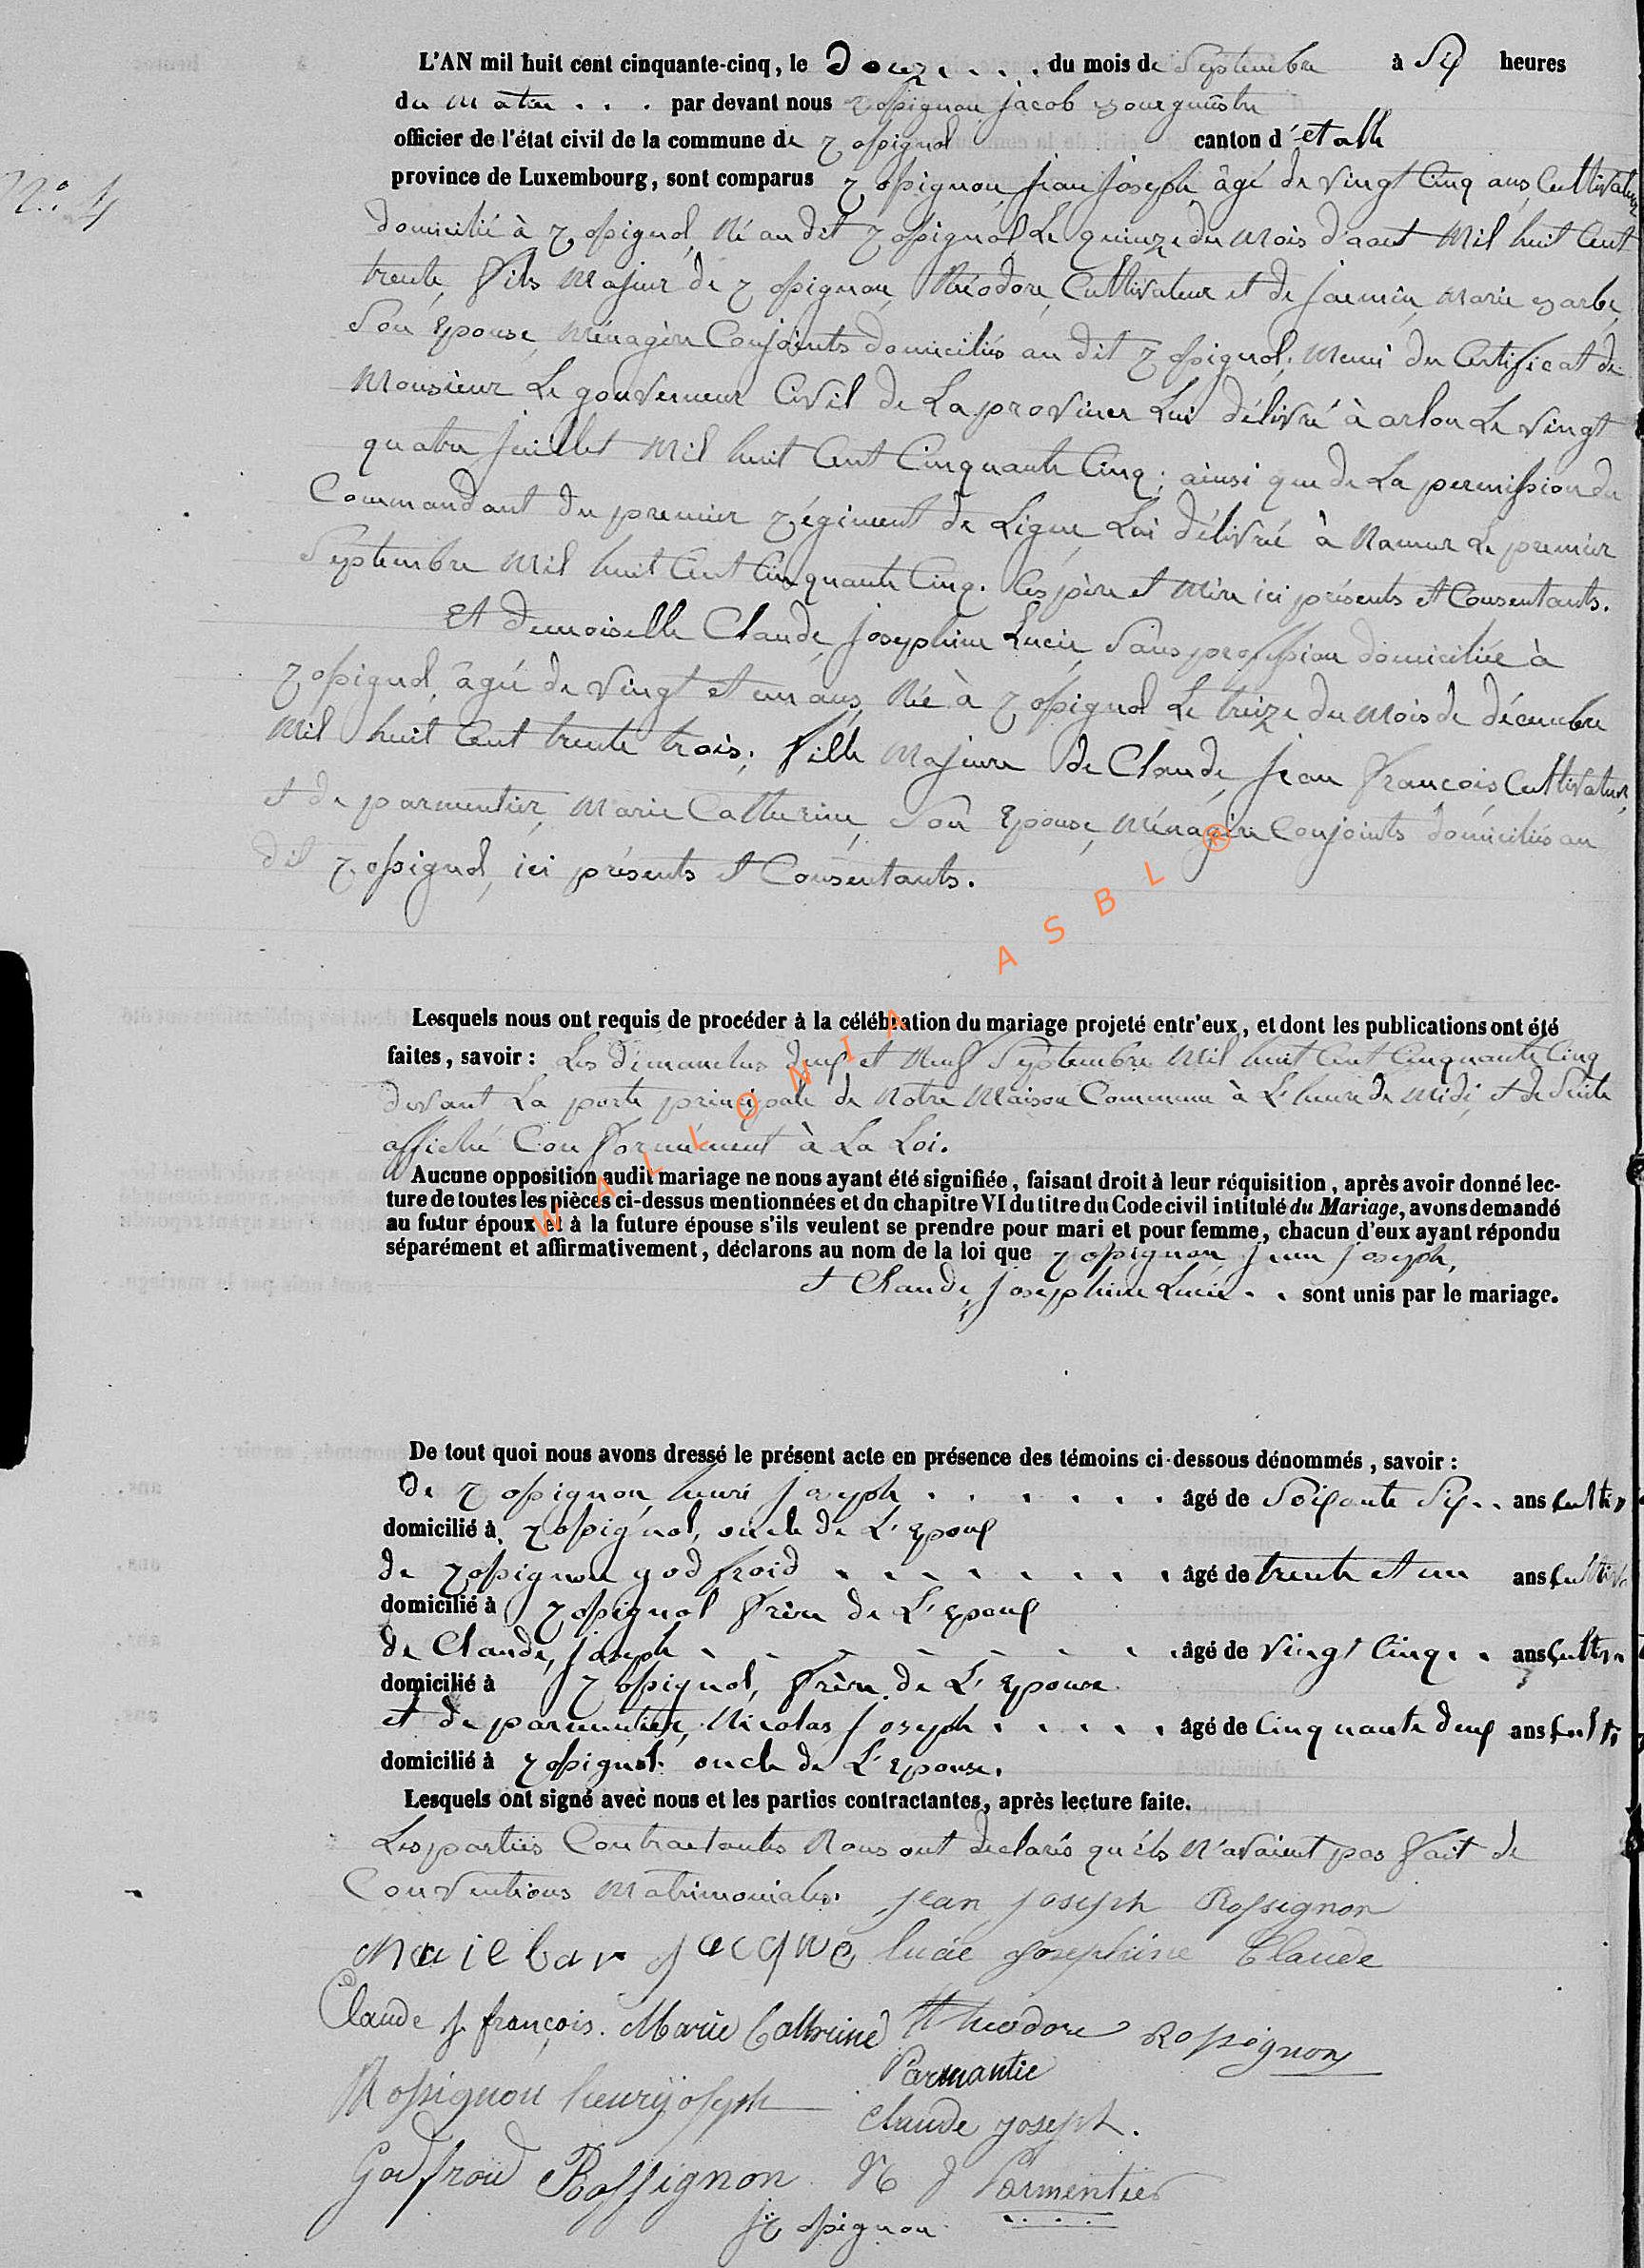 L'AN mil huit cent cinquante-cinq, le Douze . . . du mois de Septembre à Six heures
du Matin . . . par devant nous Rossignon Jacob Bourgmestre
officier de l'état civil de la commune de Rossignol canton d'Etalle
N.° 4
province de Luxembourg, sont comparus Rossignon, Jean Joseph, âgé de vingt Cinq ans, Cultivateur
domicilié à Rossignol, Né au dit Rossignol Le quinze du Mois d'aout Mil huit Cent
trente, Fils Majeur de Rossignon, Théodore, Cultivateur et de Jacmin, Marie Barbe,
Son Epouse, Ménagère Conjoints domiciliés au dit Rossignol; Muni du Certificat de
Monsieur Le gouverneur Civil de La province Lui délivré à arlon Le vingt
quatre Juillet Mil huit Cent Cinquante Cinq; ainsi que de La permission du
Commandant du premier Régiment de Ligne, Lui délivrée à Namur Le premier
Septembre Mil huit Cent Cinquante Cinq. Ces père et Mère ici présents et Consentants.
Et Demoiselle Claude, Josephine Lucie, Sans profession domiciliée à
Rossignol, âgée de Vingt et un ans, Née à Rossignol Le treize du Mois de décembre
Mil huit Cent trente trois; Fille Majeure de Claude, Jean François Cultivateur,
et de parmentier, Marie Catherine, Son Epouse, Ménagère Conjoints domiciliés au
dit Rossignol, ici présents et Consentants.
WALLONIA ASBL ®
Lesquels nous ont requis de procéder à la célébration du mariage projeté entr'eux, et dont les publications ont été
faites, savoir : Les dimanches deux et Neuf Septembre Mil huit Cent Cinquante Cinq
devant La porte principale de Notre Maison Commune à L'heure de Midi, et de Suite
affiché Conformément à La Loi.
Aucune opposition audit mariage ne nous ayant été signifiée, faisant droit à leur réquisition, après avoir donné lec-
ture de toutes les pièces ci-dessus mentionnées et du chapitre VI du titre du Code civil intitulé du Mariage, avons demandé
au futur époux et à la future épouse s'ils veulent se prendre pour mari et pour femme, chacun d'eux ayant répondu
séparément et affirmativement, déclarons au nom de la loi que Rossignon, Jean Joseph,
et Claude, Josephine Lucie . . sont unis par le mariage.
De tout quoi nous avons dressé le présent acte en présence des témoins ci-dessous dénommés, savoir :
De Rossignon, henri Joseph . . . . . . . âgé de Soixante Six . . ans Cultiv
domicilié à Rossignol, oncle de L'Epoux
de Rossignon godfroid . . . . . . . . âgé de trente et un ans Cultiva
domicilié à Rossignol Frère de L'Epoux
de Claude, Joseph . . . . . . . . âgé de Vingt Cinq . . ans Cultiv
domicilié à Rossignol, Frère de L'Epouse.
et de parmentier, Nicolas Joseph . . . . . âgé de Cinquante deux ans Culti
domicilié à Rossignol. oncle de L'Epouse.
Lesquels ont signé avec nous et les parties contractantes, après lecture faite.
Les parties Contractantes Nous ont declarés qu'ils N'avaient pas Fait de
Conventions Matrimoniales. Jean Joseph Rossignon
Marie bar Jacque lucie Josephine Claude
Claude J. françois. Marie Cathrine Theodore Rossignon
Parmantie
Rossignon henry joseph
Claude Joseph.
Godfroid Rossignon N J Parmentier
Jb Rossignon